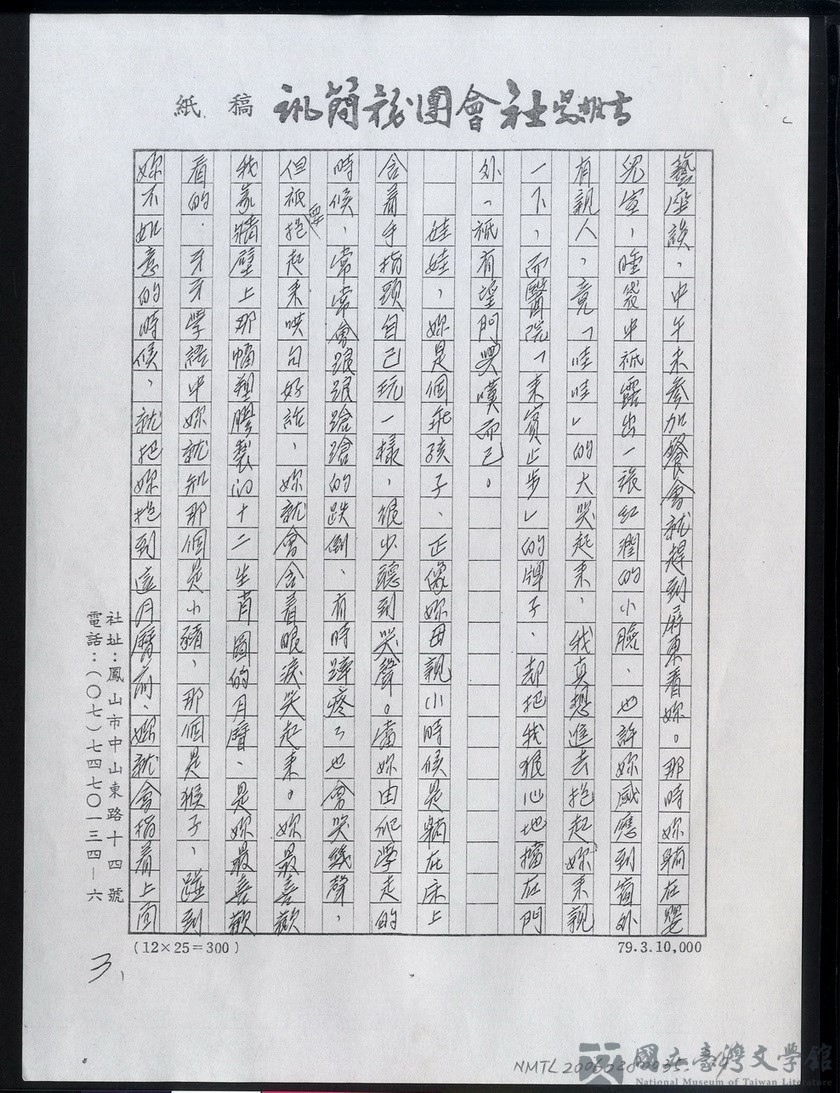 吉雄吳社會團務簡訊 稿紙
藝座談,中午未參加餐會就趕到屏東看妳。那時妳躺在嬰
兒室,睡袋中祇露出一張紅潤的小臉,也許妳感應到窗外
有親人,竟「哇哇」的大哭起來,我真想進去抱起妳來親
一下,而醫院「來賓止步」的牌子,却把我狠心地擋在門
外,祇有望門興嘆而已。
娃娃,妳是個乖孩子,正像妳母親小時候是躺在床上
含着手指頭自己玩一樣,很少聽到哭聲。當妳由爬學走的
時候,常常會踉踉蹌蹌的跌倒,有時蹲疼了也會哭幾聲,
但祇要抱起來哄句好話,妳就會含着眼淚笑起來。妳最喜歡
我家牆壁上那幅塑膠製的十二生肖圖的月曆,是妳最喜歡
看的,牙牙學語中妳就知那個是小豬,那個是猴子,碰到
妳不如意的時候,就把妳抱到這月曆前,妳就會指着上面
社址:鳳山市中山東路十四號
電話:(〇七)七四七〇一三四-六
(12×25=300)
79.3.10,000
3,
國立臺灣文學館
National Museum of Taiwan Literature